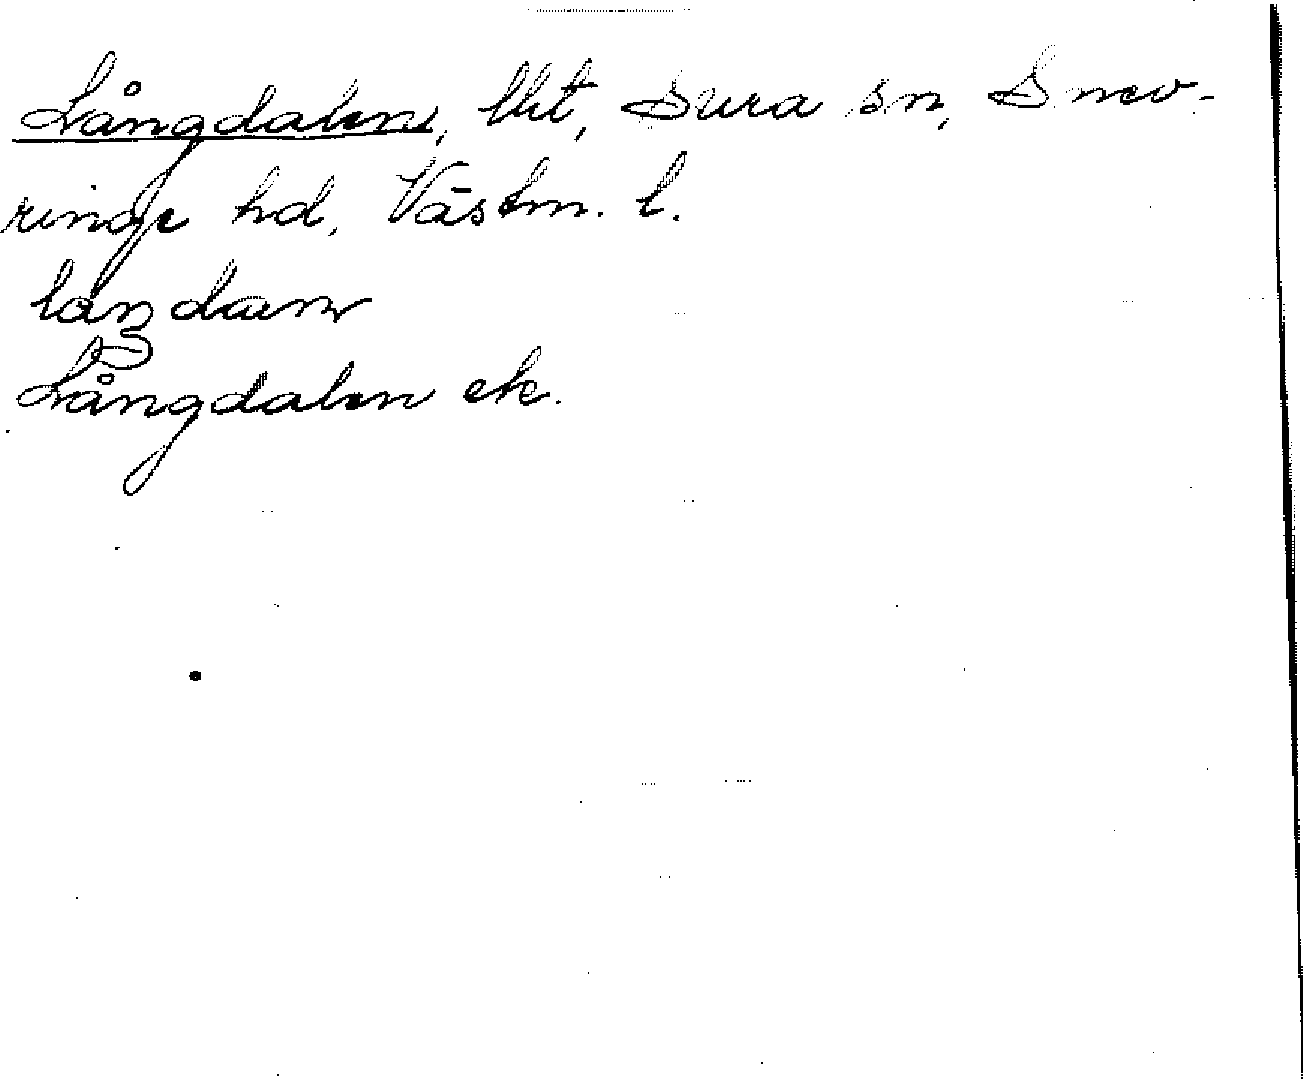 Långdalen, lht, Sura sn, Snev-
ringe hd, Västm. l.
Långdalen ek.